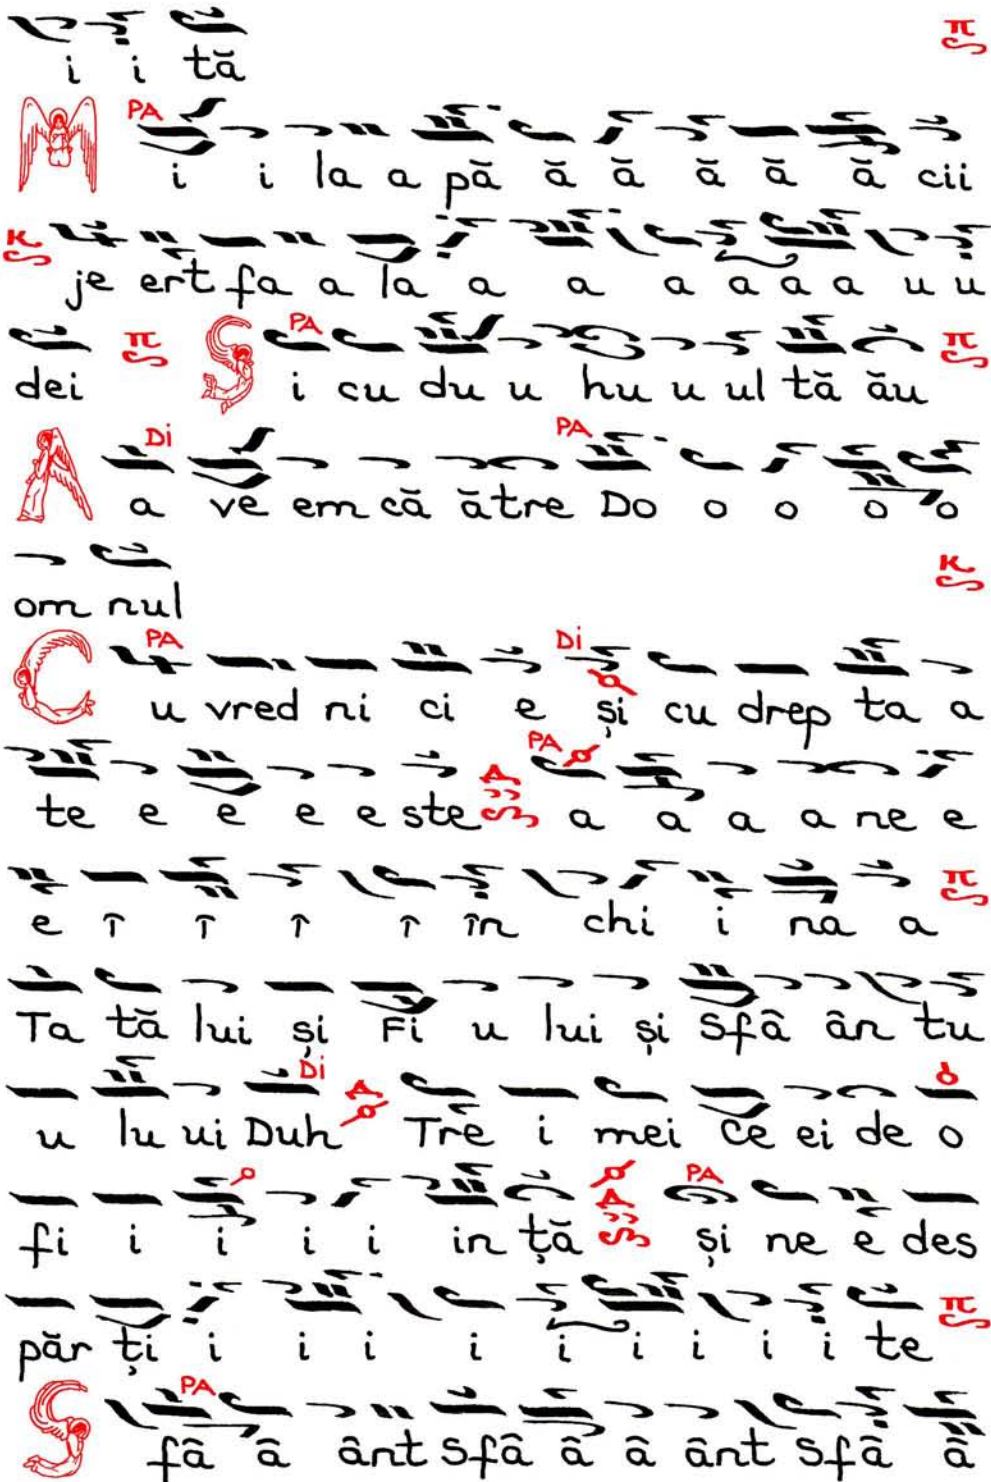 i i tă
PA
M i i la a pă ă ă ă ă ă cii
je ert fa a la a a a a a a u u
dei PA S i cu du u hu u ul tă ău
Di PA
A a ve em că ătre Do o o o o
om nul
PA Di
C u vred ni ci e și cu drep ta a
PA
te e e e e ste a a a a ne e
e î î î î în chi i na a
Ta tă lui și Fi u lui și Sfâ ân tu
Di
u lu ui Duh Tre i mei ce ei de o
PA
fi i i i i in ță și ne e des
păr ți i i i i i i i i i te
PA
S fâ â ânt Sfâ â â ânt Sfâ â